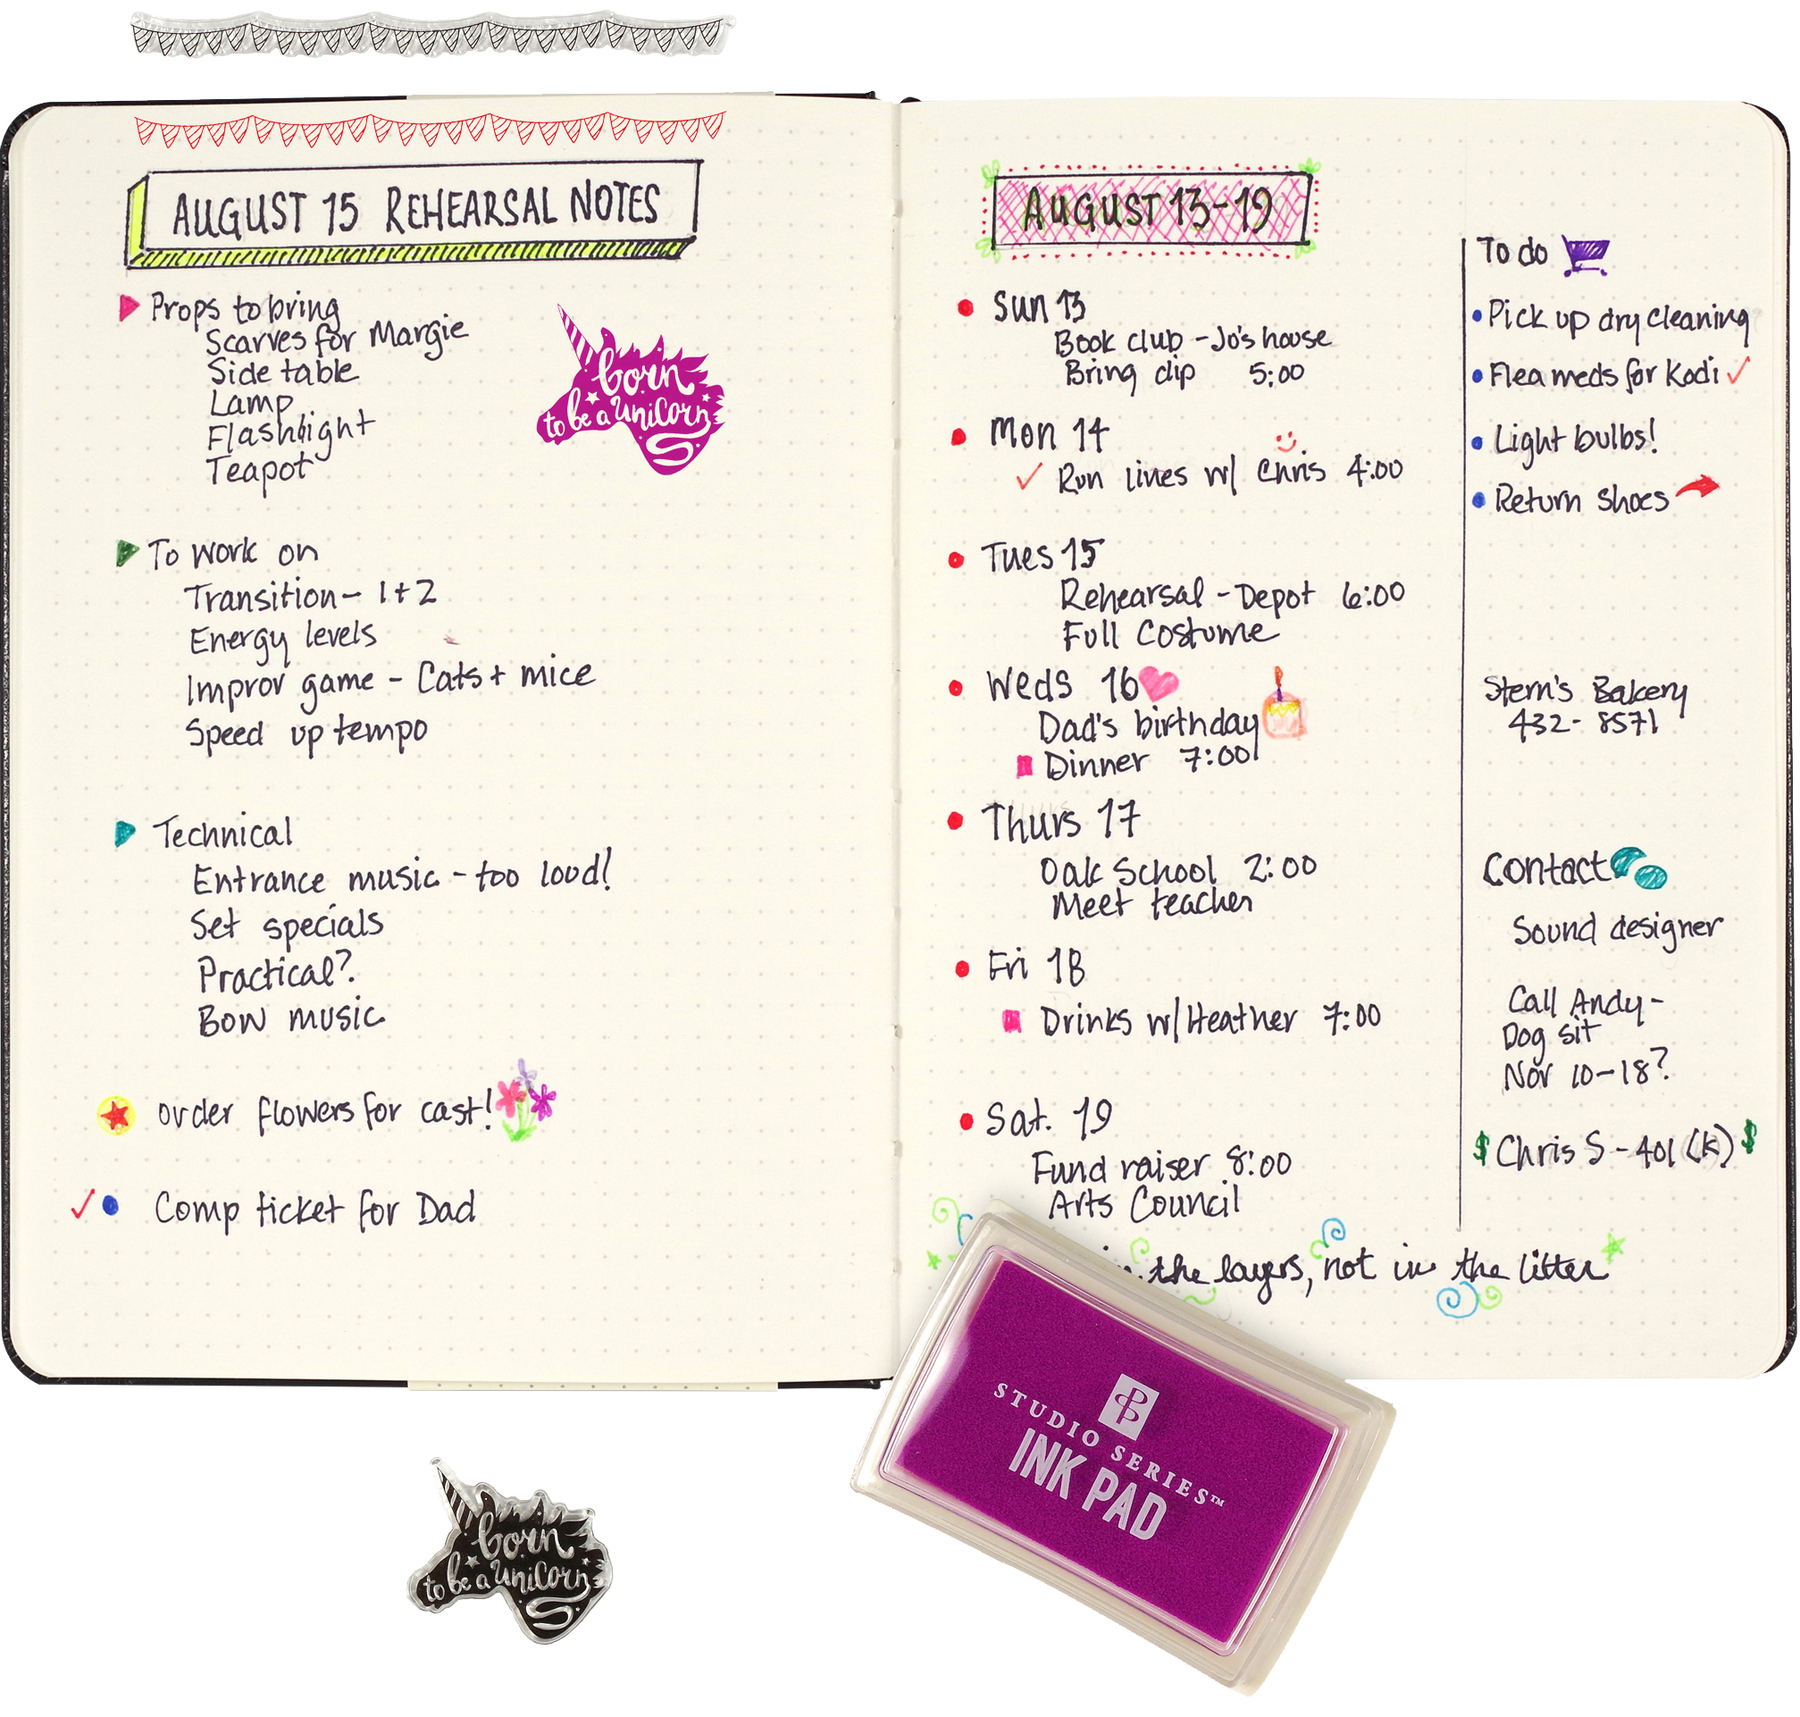 AUGUST 15 REHEARSAL NOTES
Props to bring
Scarves for Margie
Side table
Lamp
Flashlight
Teapot
born
to be a unicorn
To work on
Transition - 1+2
Energy levels
Improv game - Cats + mice
Speed up tempo
Technical
Entrance music - too loud!
Set specials
Practical?
Bow music
order flowers for cast!
Comp ticket for Dad
AUGUST 13-19
Sun 13
Book club - Jo's house
Bring dip 5:00
Mon 14
Run lines w/ Chris 4:00
Tues 15
Rehearsal - Depot 6:00
Full Costume
Weds 16
Dad's birthday
Dinner 7:00
Thurs 17
Oak School 2:00
Meet teacher
Fri 18
Drinks w/ Heather 7:00
Sat. 19
Fund raiser 8:00
Arts Council
in the layers, not in the litter
To do
Pick up dry cleaning
Flea meds for Kodi
Light bulbs!
Return shoes
Stern's Bakery
432-8571
Contact
Sound designer
Call Andy -
Dog sit
Nov 10-18?
$ Chris S - 401(k) $
STUDIO SERIES™
INK PAD
born
to be a unicorn